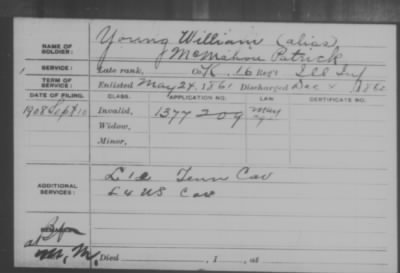 NAME OF SOLDIER: Young William (alias)
McMahon Patrick
SERVICE: Late rank, Co. K, 16 Reg't Ill Inf
TERM OF SERVICE: Enlisted May 24, 1861 Discharged Dec 4, 186
DATE OF FILING. CLASS. APPLICATION NO. LAW. CERTIFICATE NO.
1908 Sept 10 Invalid, 1377209
Widow,
Minor,
ADDITIONAL SERVICES: L 1 Tenn Cav
L 4 US Cav
REMARKS:
Died , 1 , at